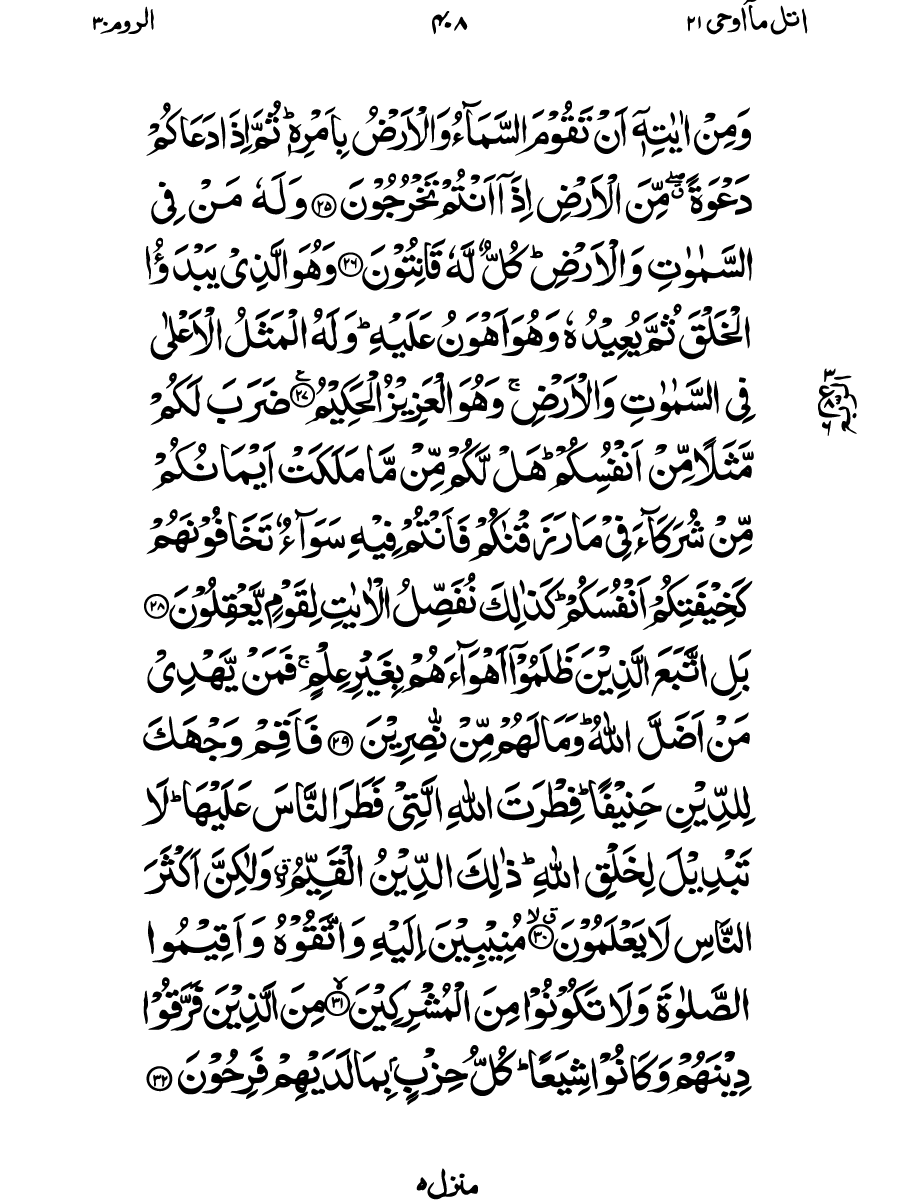 اتل مآاوحی ۲۱
۴۰۸
الروم ۳۰
وَمِنْ اٰیٰتِهٖۤ اَنْ تَقُوْمَ السَّمَآءُ وَالْاَرْضُ بِاَمْرِهٖؕ ثُمَّ اِذَا دَعَاكُمْ
دَعْوَةً ۖۗ مِّنَ الْاَرْضِ اِذَاۤ اَنْتُمْ تَخْرُجُوْنَ ۝۲۵ وَلَهٗ مَنْ فِی
السَّمٰوٰتِ وَالْاَرْضِؕ كُلٌّ لَّهٗ قَانِتُوْنَ ۝۲۶ وَهُوَ الَّذِیْ یَبْدَؤُا
الْخَلْقَ ثُمَّ یُعِیْدُهٗ وَهُوَ اَهْوَنُ عَلَیْهِؕ وَلَهُ الْمَثَلُ الْاَعْلٰی
فِی السَّمٰوٰتِ وَالْاَرْضِۚ وَهُوَ الْعَزِیْزُ الْحَكِیْمُ ۝۲۷ ضَرَبَ لَكُمْ
مَّثَلًا مِّنْ اَنْفُسِكُمْؕ هَلْ لَّكُمْ مِّنْ مَّا مَلَكَتْ اَیْمَانُكُمْ
مِّنْ شُرَكَآءَ فِیْ مَا رَزَقْنٰكُمْ فَاَنْتُمْ فِیْهِ سَوَآءٌ تَخَافُوْنَهُمْ
كَخِیْفَتِكُمْ اَنْفُسَكُمْؕ كَذٰلِكَ نُفَصِّلُ الْاٰیٰتِ لِقَوْمٍ یَّعْقِلُوْنَ ۝۲۸
بَلِ اتَّبَعَ الَّذِیْنَ ظَلَمُوْۤا اَهْوَآءَهُمْ بِغَیْرِ عِلْمٍۚ فَمَنْ یَّهْدِیْ
مَنْ اَضَلَّ اللّٰهُؕ وَمَا لَهُمْ مِّنْ نّٰصِرِیْنَ ۝۲۹ فَاَقِمْ وَجْهَكَ
لِلدِّیْنِ حَنِیْفًاؕ فِطْرَتَ اللّٰهِ الَّتِیْ فَطَرَ النَّاسَ عَلَیْهَاؕ لَا
تَبْدِیْلَ لِخَلْقِ اللّٰهِؕ ذٰلِكَ الدِّیْنُ الْقَیِّمُۗ وَلٰكِنَّ اَكْثَرَ
النَّاسِ لَا یَعْلَمُوْنَ ۝۳۰ مُنِیْبِیْنَ اِلَیْهِ وَاتَّقُوْهُ وَاَقِیْمُوا
الصَّلٰوةَ وَلَا تَكُوْنُوْا مِنَ الْمُشْرِكِیْنَ ۝۳۱ مِنَ الَّذِیْنَ فَرَّقُوْا
دِیْنَهُمْ وَكَانُوْا شِیَعًاؕ كُلُّ حِزْبٍۭ بِمَا لَدَیْهِمْ فَرِحُوْنَ ۝۳۲
منزل ۵